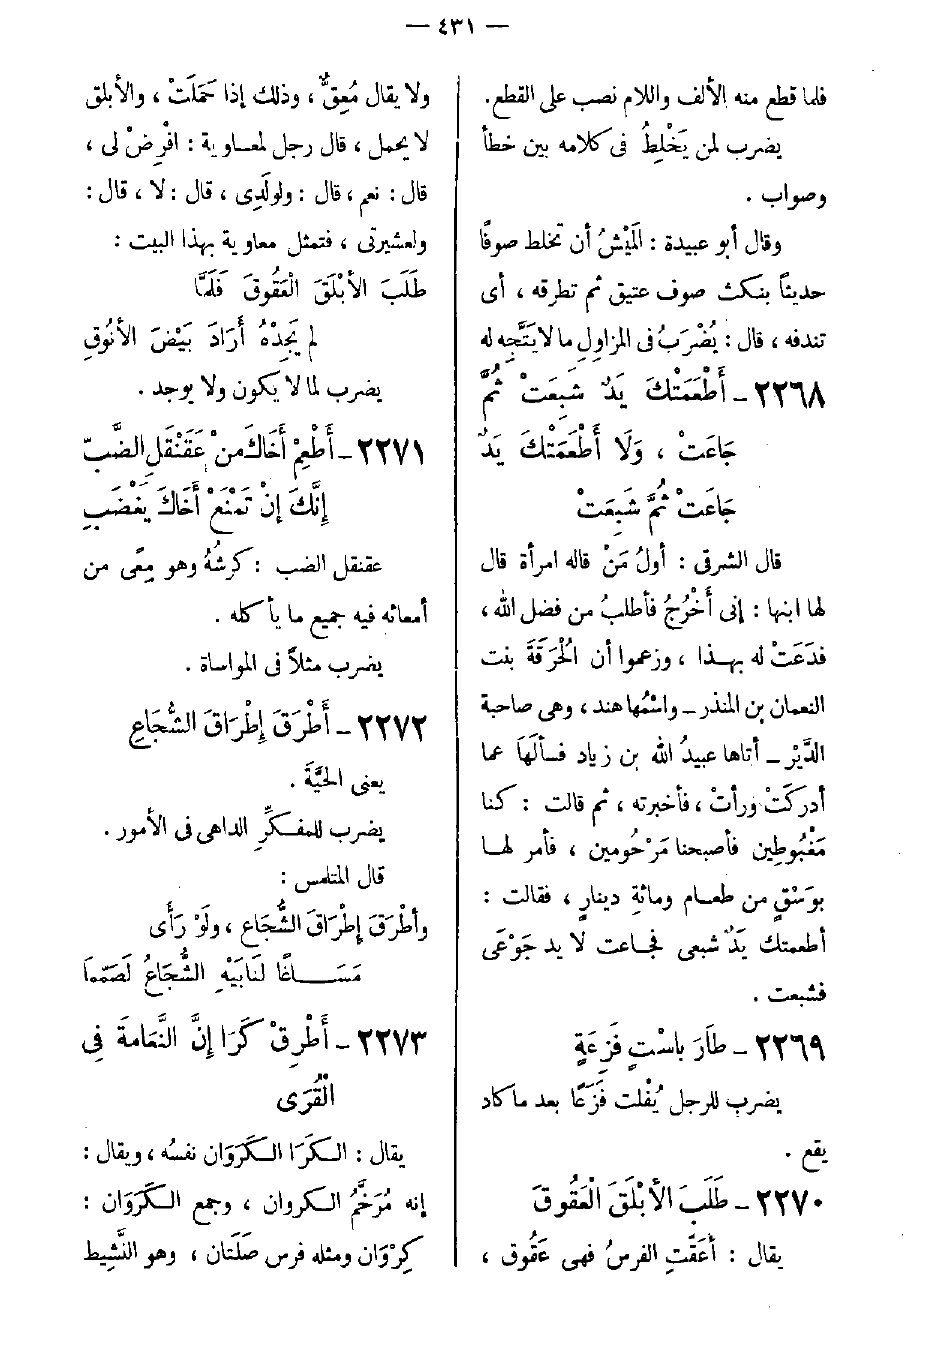 — ٤٣١ —
فلما قطع منه الألف واللام نصب على القطع.
يضرب لمن يَخْلِطُ فى كلامه بين خطأ
وصواب .
وقال أبو عبيدة : الْمَيْشُ أن تخلط صوفًا
حديثاً بنكث صوف عتيق ثم تطرقه ، أى
تندفه ، قال : يُضْرَبُ فى المزاولِ ما لا يَتَّجِه له
٢٢٦٨ – أَطْعَمَتْكَ يَدٌ شَبِعَتْ ثُمَّ
جَاعَتْ ، وَلَا أَطْعَمَتْكَ يَدٌ
جَاعَتْ ثُمَّ شَبِعَتْ
قال الشرقى : أولُ مَنْ قاله امرأة قال
لها ابنها : إنى أَخْرُجُ فأطلبُ من فضل الله ،
فدَعَتْ له بهذا ، وزعموا أن الْحُرَقَةَ بنت
النعمان بن المنذر – واسْمُها هند ، وهى صاحبة
الدَّيْر – أتاها عبيدُ الله بن زياد فسألَهاَ عما
أدركَتْ ورأتْ ، فأخبرته ، ثم قالت : كنا
مَغْبُوطِين فأصبحنا مَرْحُومين ، فأمر لها
بوَسْقٍ من طعام ومائةِ دينارٍ ، فقالت :
أطعمتك يَدٌ شبعى فجاعت لا يد جَوْعَى
فشبعت .
٢٢٦٩ – طاَرَ باسْتِ فَزِعَةٍ
يضرب للرجل يُفْلت فَزَعًا بعد ما كاد
يقع .
٢٢٧٠ – طَلَبَ الأبْلَقَ الْعَقُوقَ
يقال : أعَقَّتِ الفرسُ فهى عَقُوق ،
ولا يقال مُعِقٌّ ، وذلك إذا حَمَلَتْ ، والأبلق
لا يحمل ، قال رجل لمعاوية : افْرِضْ لى ،
قال : نعم ، قال : ولولَدِى ، قال : لا ، قال :
ولعشيرتى ، فتمثل معاوية بهذا البيت :
طَلَبَ الأبْلَقَ الْعَقُوقَ فَلَمَّا
لم يَجِدْهُ أَرَادَ بَيْضَ الأنُوقِ
يضرب لما لا يكون ولا يوجد .
٢٢٧١ – أَطْعِمْ أَخَاكَ مِنْ عَقَنْقَلِ الضَّبِّ
إنَّكَ إنْ تَمْنَعْ أَخَاكَ يَغْضَبِ
عقنقل الضب : كَرِشُهُ وهو مِعًى من
أمعائه فيه جميع ما يأكله .
يضرب مثلاً فى المواساة .
٢٢٧٢ – أَطْرَقَ إِطْرَاقَ الشُّجَاعِ
يعنى الحيَّةَ .
يضرب للمفكِّرِ الداهى فى الأمور .
قال المتلمس :
وأطْرَقَ إطْرَاقَ الشُّجَاعِ ، ولَوْ رَأَى
مَسَاغًا لنَابَيْهِ الشُّجَاعُ لَصَمَّماَ
٢٢٧٣ – أَطْرِقْ كَرَا إنَّ النَّعَامةَ فِى
الْقُرَى
يقال : الكَرَا الكَرَوَان نفسُه ، ويقال :
إنه مُرَخَّمُ الكروان ، وجمع الكَرَوَان :
كِرْوَان ومثله فرس صَلَتَان ، وهو النَّشِيط